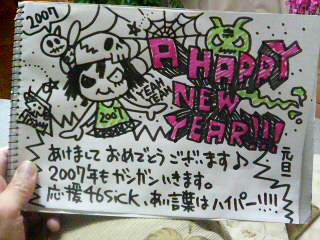 2007
A HAPPY
NEW
YEAR!!!
YEAH YEAH
2007
あけましておめでとうございます♪
元旦
2007年もガンガンいきます。
応援46sick、あい言葉はハイパー!!!!